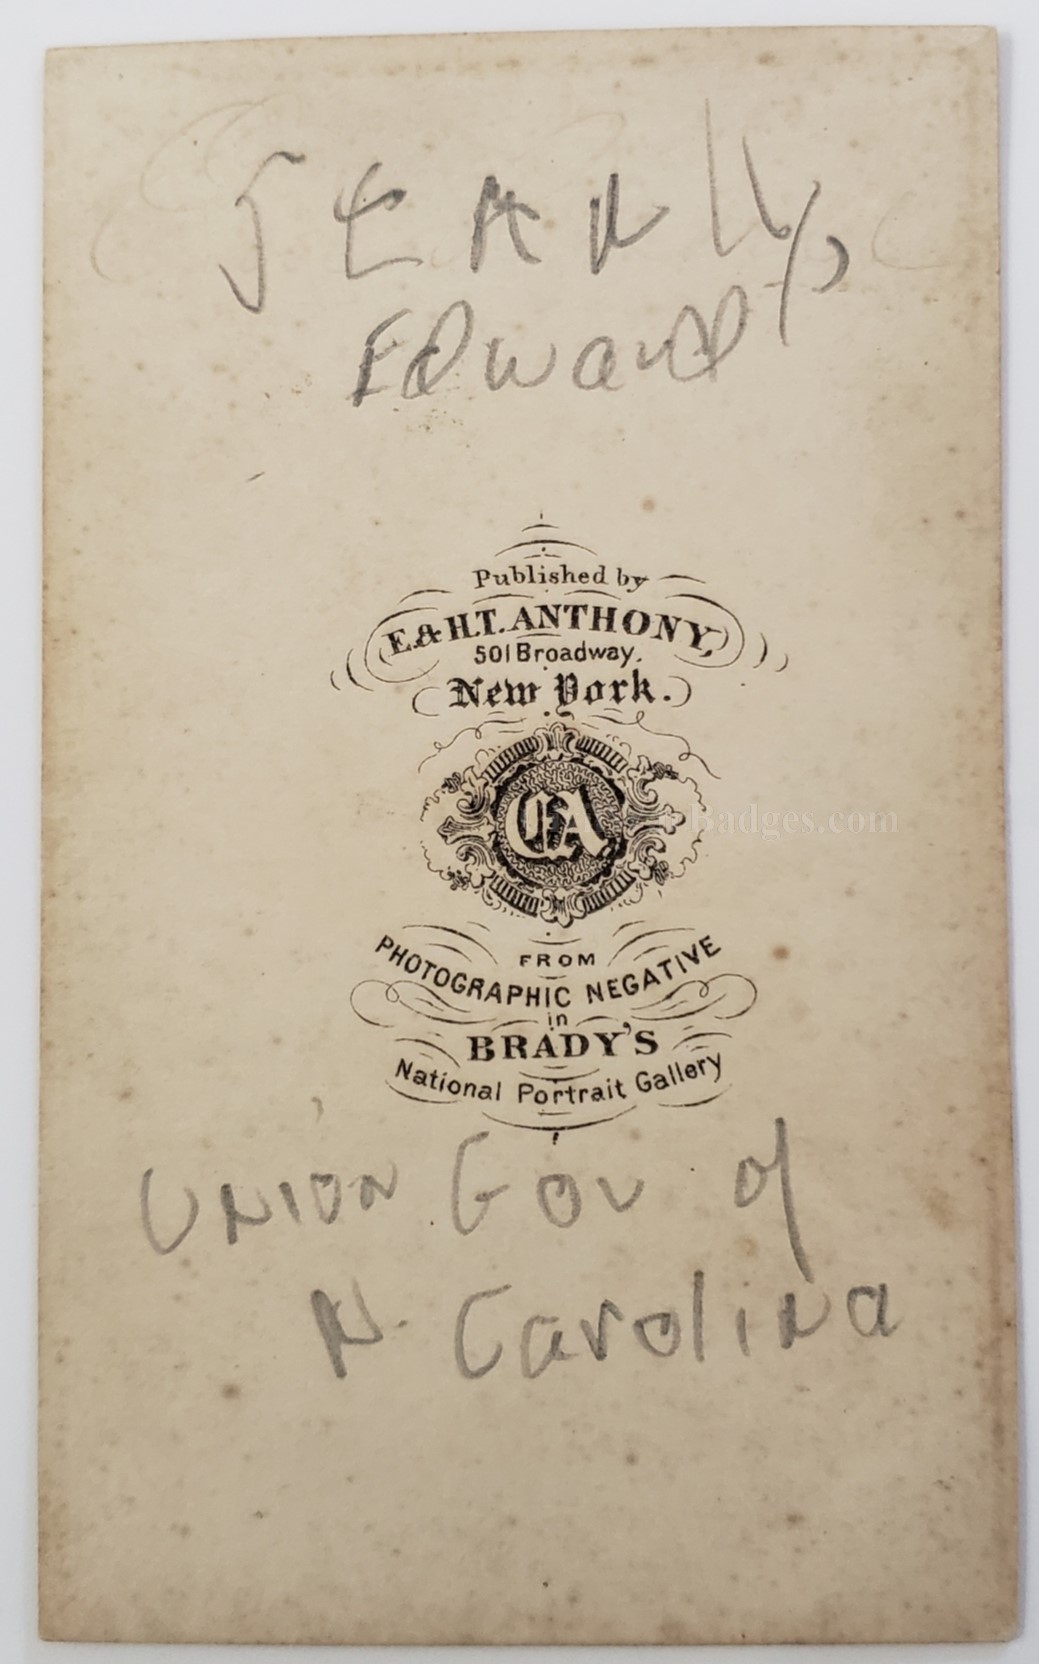 Stanly,
Edward
Published by
E. & H.T. ANTHONY,
501 Broadway.
New York.
EA
Badges.com
FROM
PHOTOGRAPHIC NEGATIVE
in
BRADY'S
National Portrait Gallery
UNION Gov of
N. Carolina